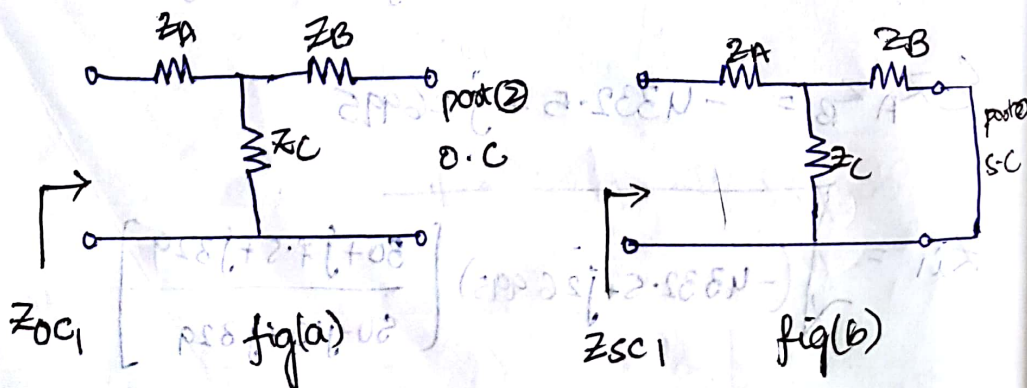 ZA ZB
port②
O.C
ZC
ZOC1
fig(a)
ZA ZB
port②
S.C
ZC
ZSC1
fig(b)